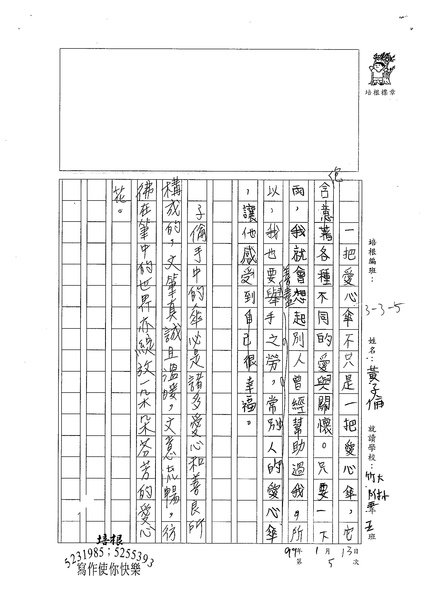 培根標章
培根編班：3-3-5 姓名：黃子倫 就讀學校：竹大附小 三年 五班
99年 1月 13日 第 5 次
一把愛心傘不只是一把愛心傘，它
包含意著各種不同的愛與關懷。只要一下
雨，我就會想起別人曾經幫助過我，所
以，我也要舉手之勞，當別人的愛心傘
，讓他感受到自己很幸福。
子倫手中的傘必是諸多愛心和善良所
構成的，文筆真誠且溫暖，文意流暢，彷
彿在筆中的世界亦綻放一朵朵芬芳的愛心
花。
培根
5231985；5255393
寫作使你快樂